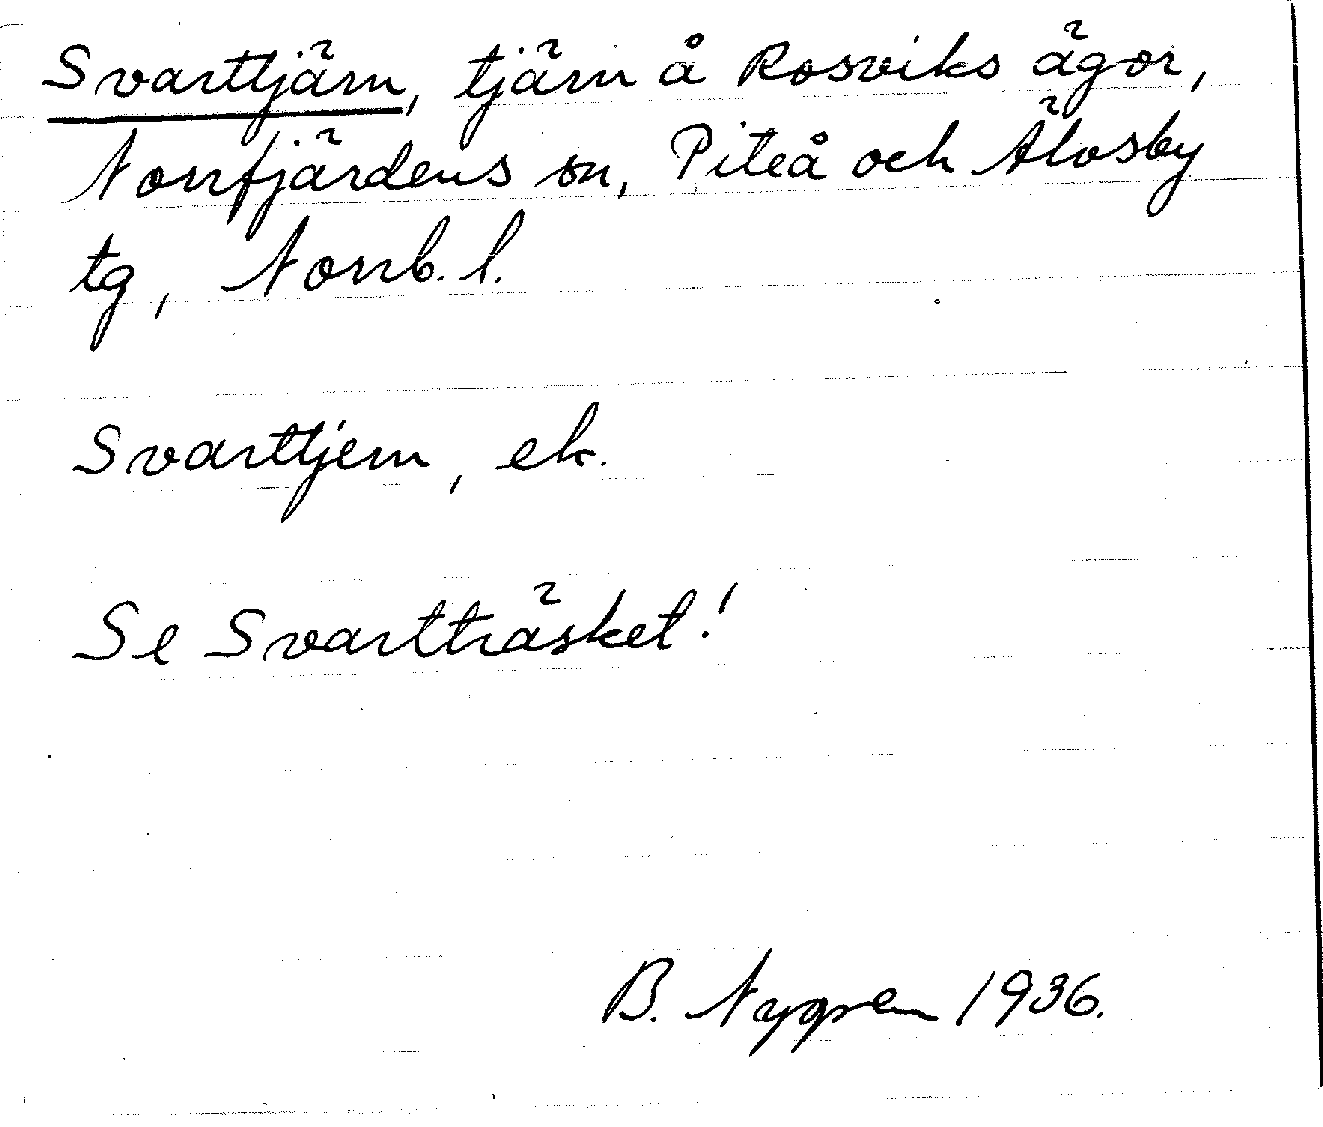 Svarttjärn, tjärn å Rosviks ägor,
Norrfjärdens sn, Piteå och Älvsby
tg, Norrb. l.
Svarttjern, ek.
Se Svartträsket!
B. Nygren 1936.